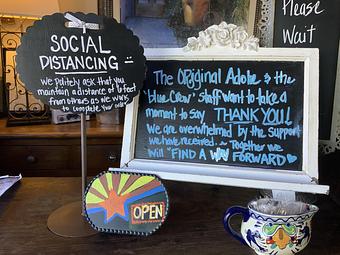 SOCIAL
DISTANCING
We politely ask that you
maintain a distance of 6 feet
from others as we work
to complete your order
Please
Wait
The Original Adobe & the
"Blue Crew" staff want to take a
moment to say THANK YOU!
We are overwhelmed by the support
we have received. ~ Together we
will "FIND A WAY FORWARD"
OPEN